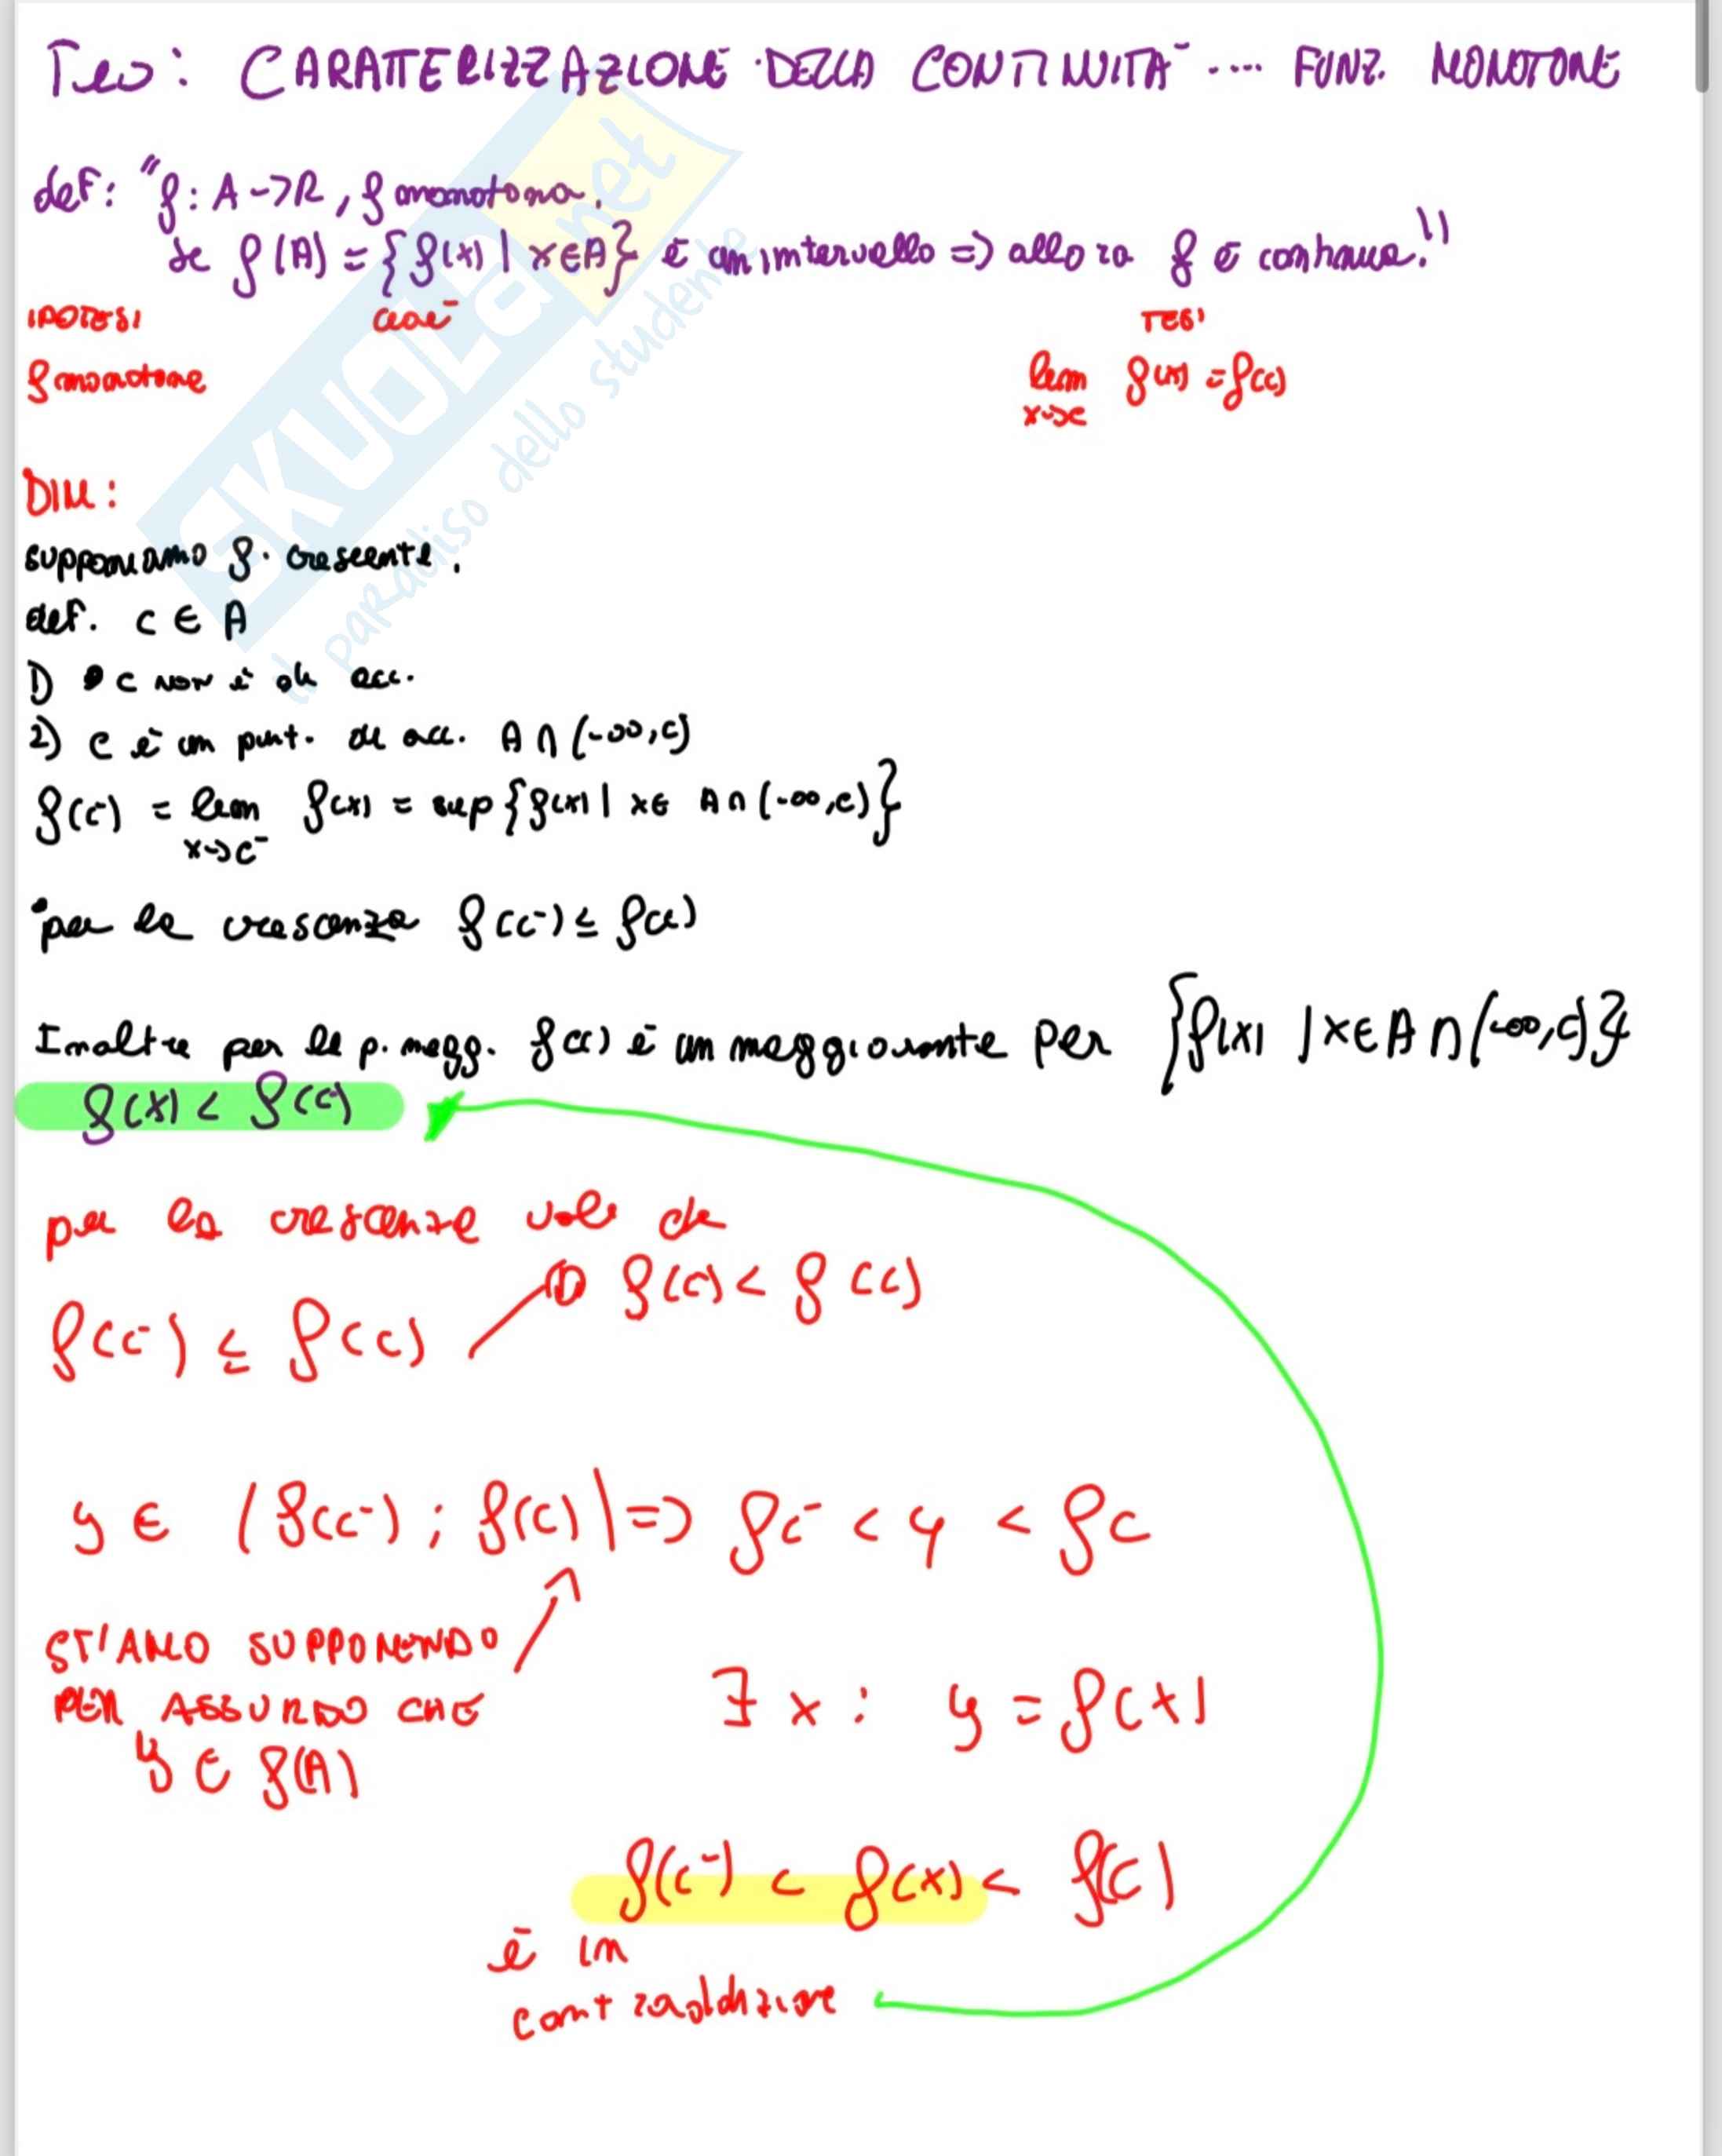 Teo: CARATTERIZZAZIONE DELLA CONTINUITÀ .... FUNZ. MONOTONE
def: "f: A->R, f monotona.
se f(A) = {f(x) | x∈A} è un intervallo => allora f è continua."
IPOTESI cioè TESI
f monotone lim f(x) = f(c)
x->c
DIM:
supponiamo f. crescente.
def. c ∈ A
1) c non è di acc.
2) c è un punt. di acc. A ∩ (-∞,c)
f(c⁻) = lim f(x) = sup{f(x) | x∈ A∩(-∞,c)}
x->c⁻
•per la crescenza f(c⁻) ≤ f(c)
Inoltre per la p. magg. f(c) è un maggiorante per {f(x) | x∈A∩(-∞,c)}
f(x) < f(c⁻)
per la crescenza vale che
f(c⁻) < f(c)
f(c⁻) ≤ f(c)
y ∈ (f(c⁻); f(c)) => fc⁻ < y < fc
STIAMO SUPPONENDO
PER ASSURDO CHE
y ∈ f(A)
∃ x: y = f(x)
f(c⁻) < f(x) < f(c)
è in
contraddizione
SKUOLa.net
il paradiso dello studente